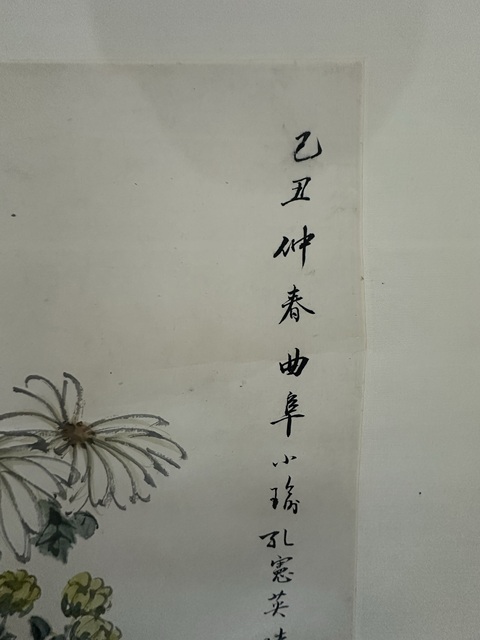 己丑仲春曲阜小瑜孔憲英